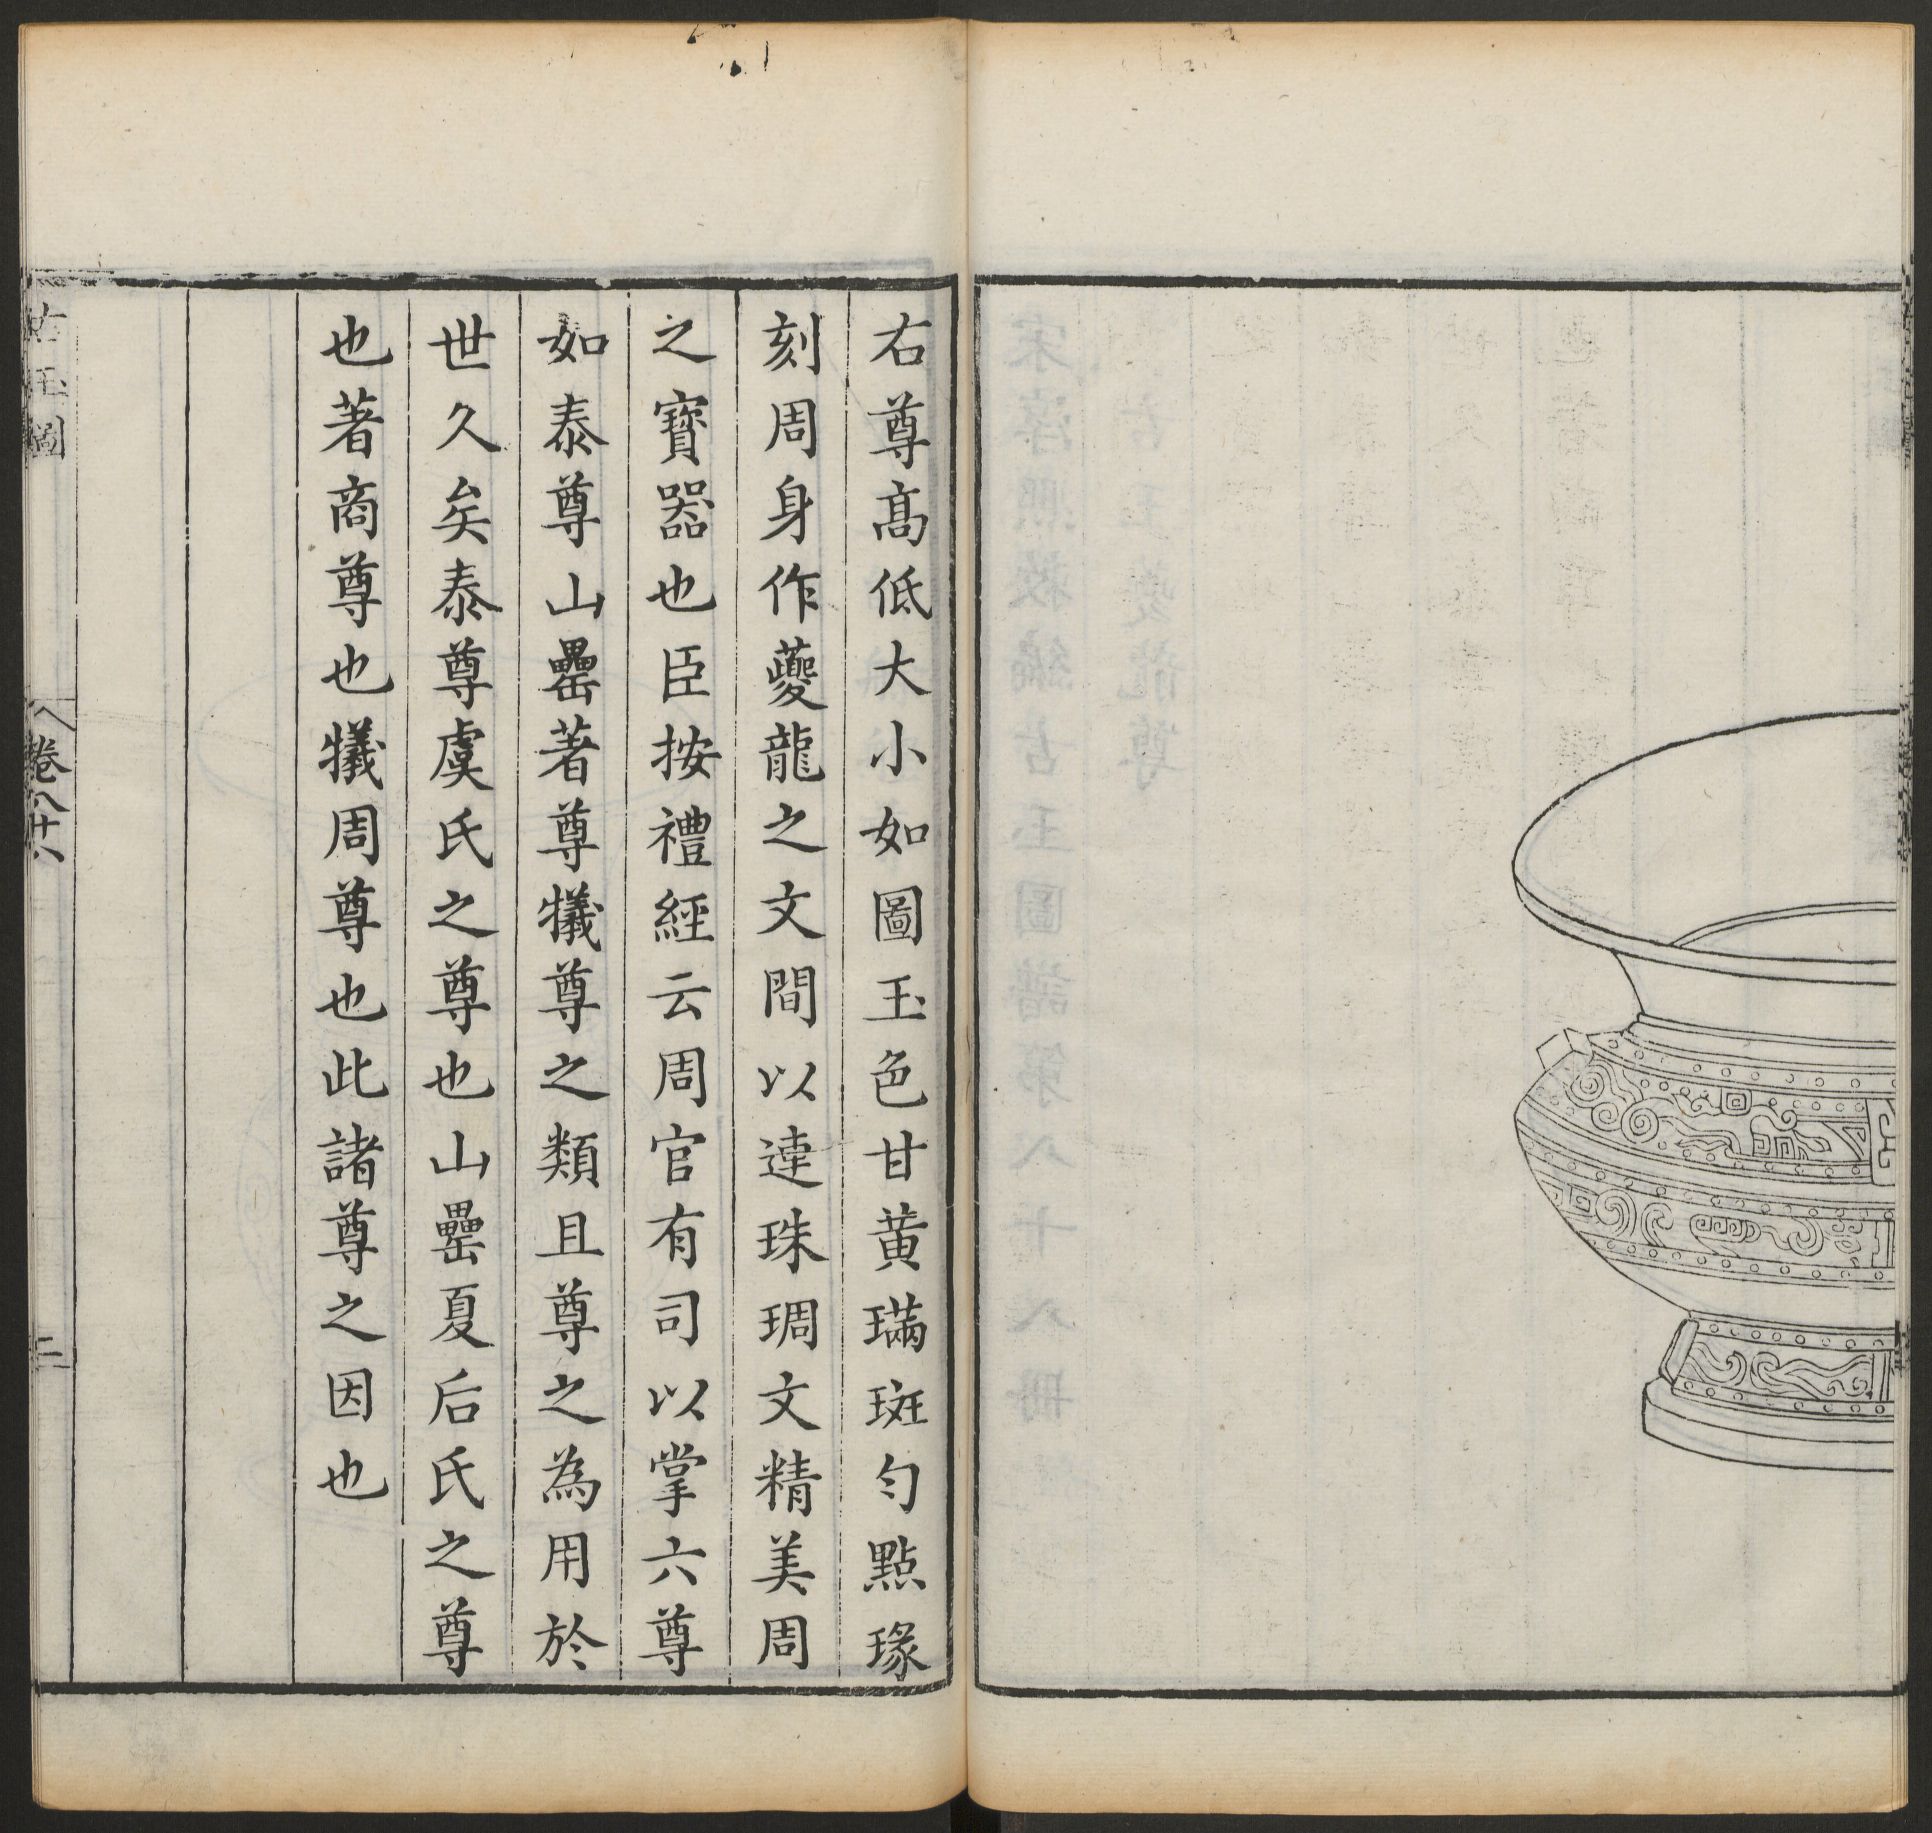 右尊高低大小如圖玉色甘黃璊斑勻點瑑
刻周身作夔龍之文間以連珠琱文精美周
之寶器也臣按禮經云周官有司以掌六尊
如泰尊山罍著尊犧尊之類且尊之為用於
世久矣泰尊虞氏之尊也山罍夏后氏之尊
也著商尊也犧周尊也此諸尊之因也
古玉圖
卷八十八
二